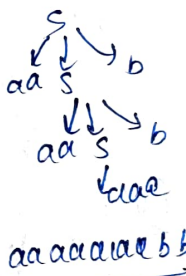 S
aa S b
aa S b
aaa
aaaaaaabb